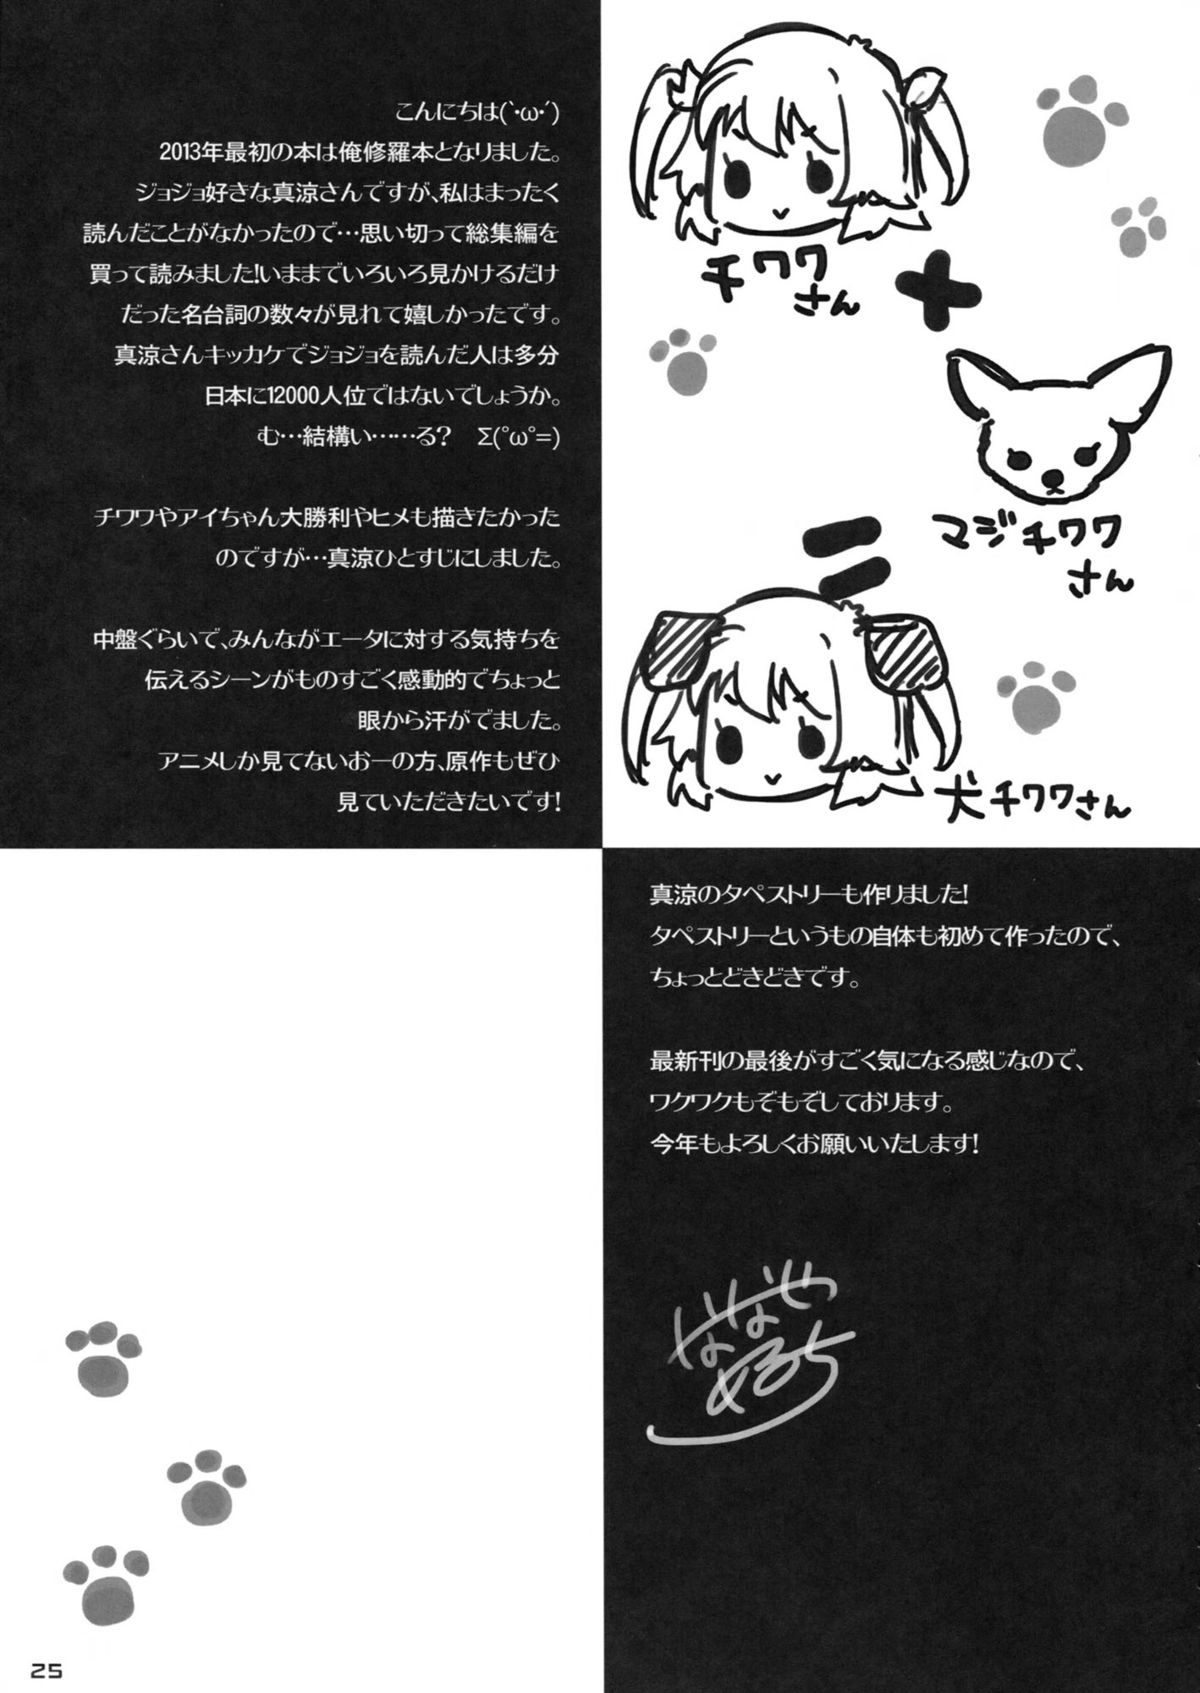 こんにちは(`･ω･´)
2013年最初の本は俺修羅本となりました。
ジョジョ好きな真涼さんですが、私はまったく
読んだことがなかったので…思い切って総集編を
買って読みました!いままでいろいろ見かけるだけ
だった名台詞の数々が見れて嬉しかったです。
真涼さんキッカケでジョジョを読んだ人は多分
日本に12000人位ではないでしょうか。
む…結構い……る?　Σ(°ω°=)
チワワやアイちゃん大勝利やヒメも描きたかった
のですが…真涼ひとすじにしました。
中盤ぐらいで、みんながエータに対する気持ちを
伝えるシーンがものすごく感動的でちょっと
眼から汗がでました。
アニメしか見てないおーの方、原作もぜひ
見ていただきたいです!
チワワ
さん
+
マジチワワ
さん
=
犬チワワさん
真涼のタペストリーも作りました!
タペストリーというもの自体も初めて作ったので、
ちょっとどきどきです。
最新刊の最後がすごく気になる感じなので、
ワクワクもぞもぞしております。
今年もよろしくお願いいたします!
ななせ
めるち
25